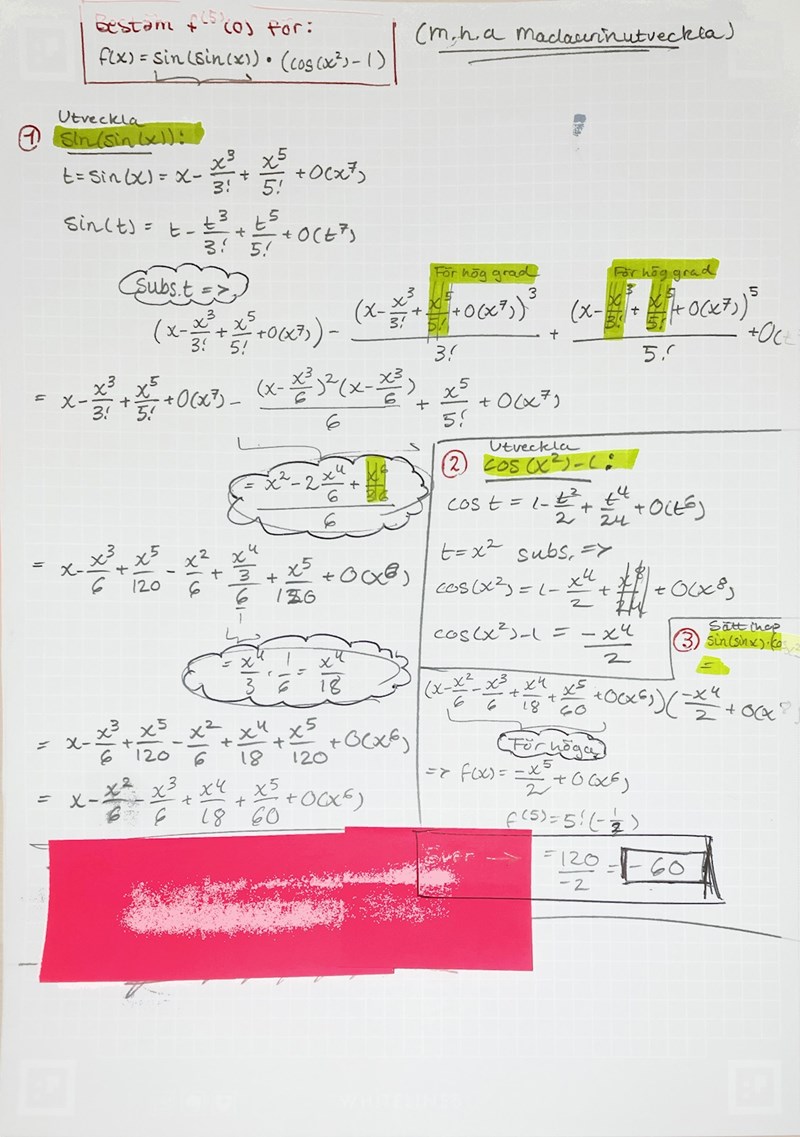 Bestäm f⁽⁵⁾(0) för:
f(x) = sin(sin(x)) • (cos(x²) - 1)
(m.h.a Maclaurinutveckla)
① Utveckla
sin(sin(x)):
t = sin(x) = x - x³/3! + x⁵/5! + O(x⁷)
sin(t) = t - t³/3! + t⁵/5! + O(t⁷)
Subs.t =>
För hög grad För hög grad
(x - x³/3! + x⁵/5! + O(x⁷)) - (x - x³/3! + x⁵/5! + O(x⁷))³/3! + (x - x³/3! + x⁵/5! + O(x⁷))⁵/5! + O(t
= x - x³/3! + x⁵/5! + O(x⁷) - (x - x³/6)²(x - x³/6)/6 + x⁵/5! + O(x⁷)
= x² - 2x⁴/6 + x⁶/36 / 6
= x - x³/6 + x⁵/120 - x²/6 + x⁴/3/6 + x⁵/120 + O(x⁶)
= x⁴/3 · 1/6 = x⁴/18
= x - x³/6 + x⁵/120 - x²/6 + x⁴/18 + x⁵/120 + O(x⁶)
= x - x²/6 - x³/6 + x⁴/18 + x⁵/60 + O(x⁶)
② Utveckla
cos(x²) - 1:
cos t = 1 - t²/2 + t⁴/24 + O(t⁶)
t = x² subs. =>
cos(x²) = 1 - x⁴/2 + x⁸/24 + O(x⁸)
cos(x²) - 1 = -x⁴/2
③ Sätt ihop
sin(sinx)·(cos
=
(x - x²/6 - x³/6 + x⁴/18 + x⁵/60 + O(x⁶))(-x⁴/2 + O(x⁸
För höga
=> f(x) = -x⁵/2 + O(x⁶)
f⁽⁵⁾ = 5!(-1/2)
Svar → = 120/-2 = -60